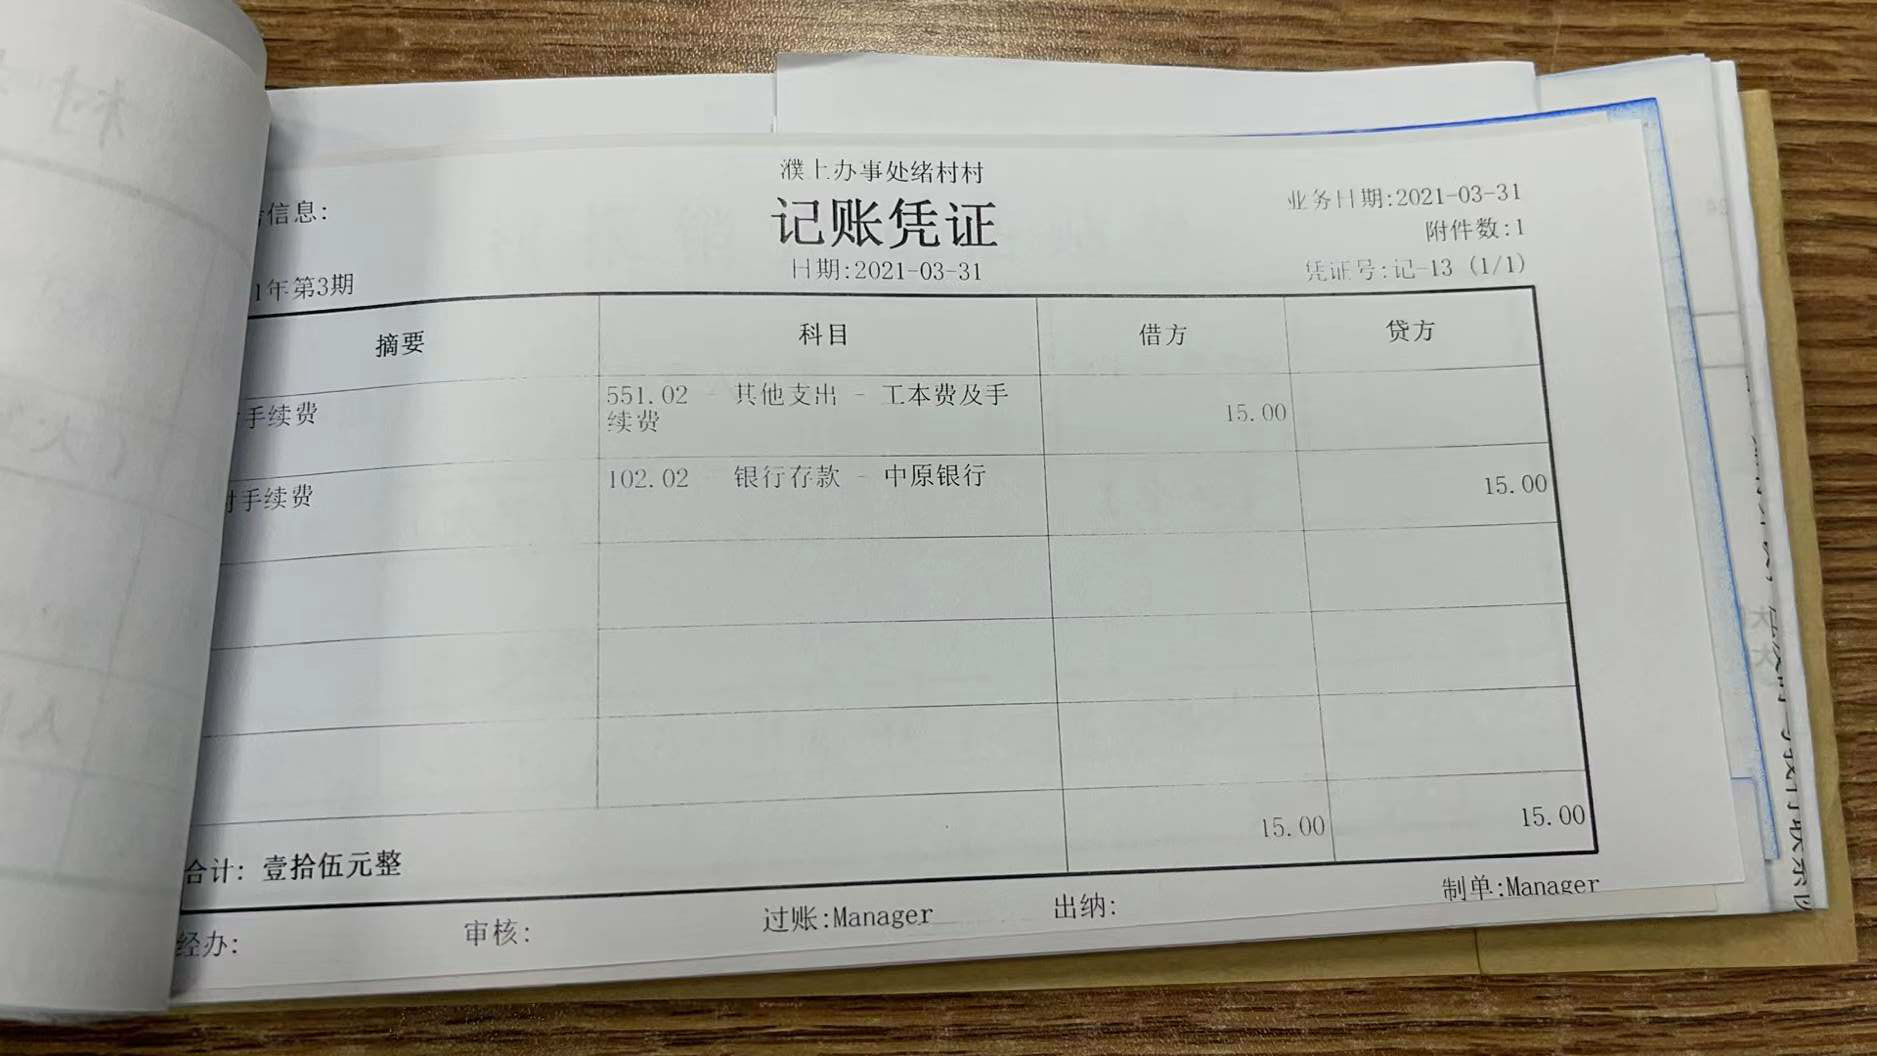 濮上办事处绪村村
记账凭证
日期:2021-03-31
业务日期:2021-03-31
附件数:1
凭证号:记-13 (1/1)
信息:
1年第3期
摘要 科目 借方 贷方
手续费 551.02 - 其他支出 - 工本费及手续费 15.00
付手续费 102.02 银行存款 - 中原银行 15.00
合计: 壹拾伍元整 15.00 15.00
经办: 审核: 过账:Manager 出纳: 制单:Manager